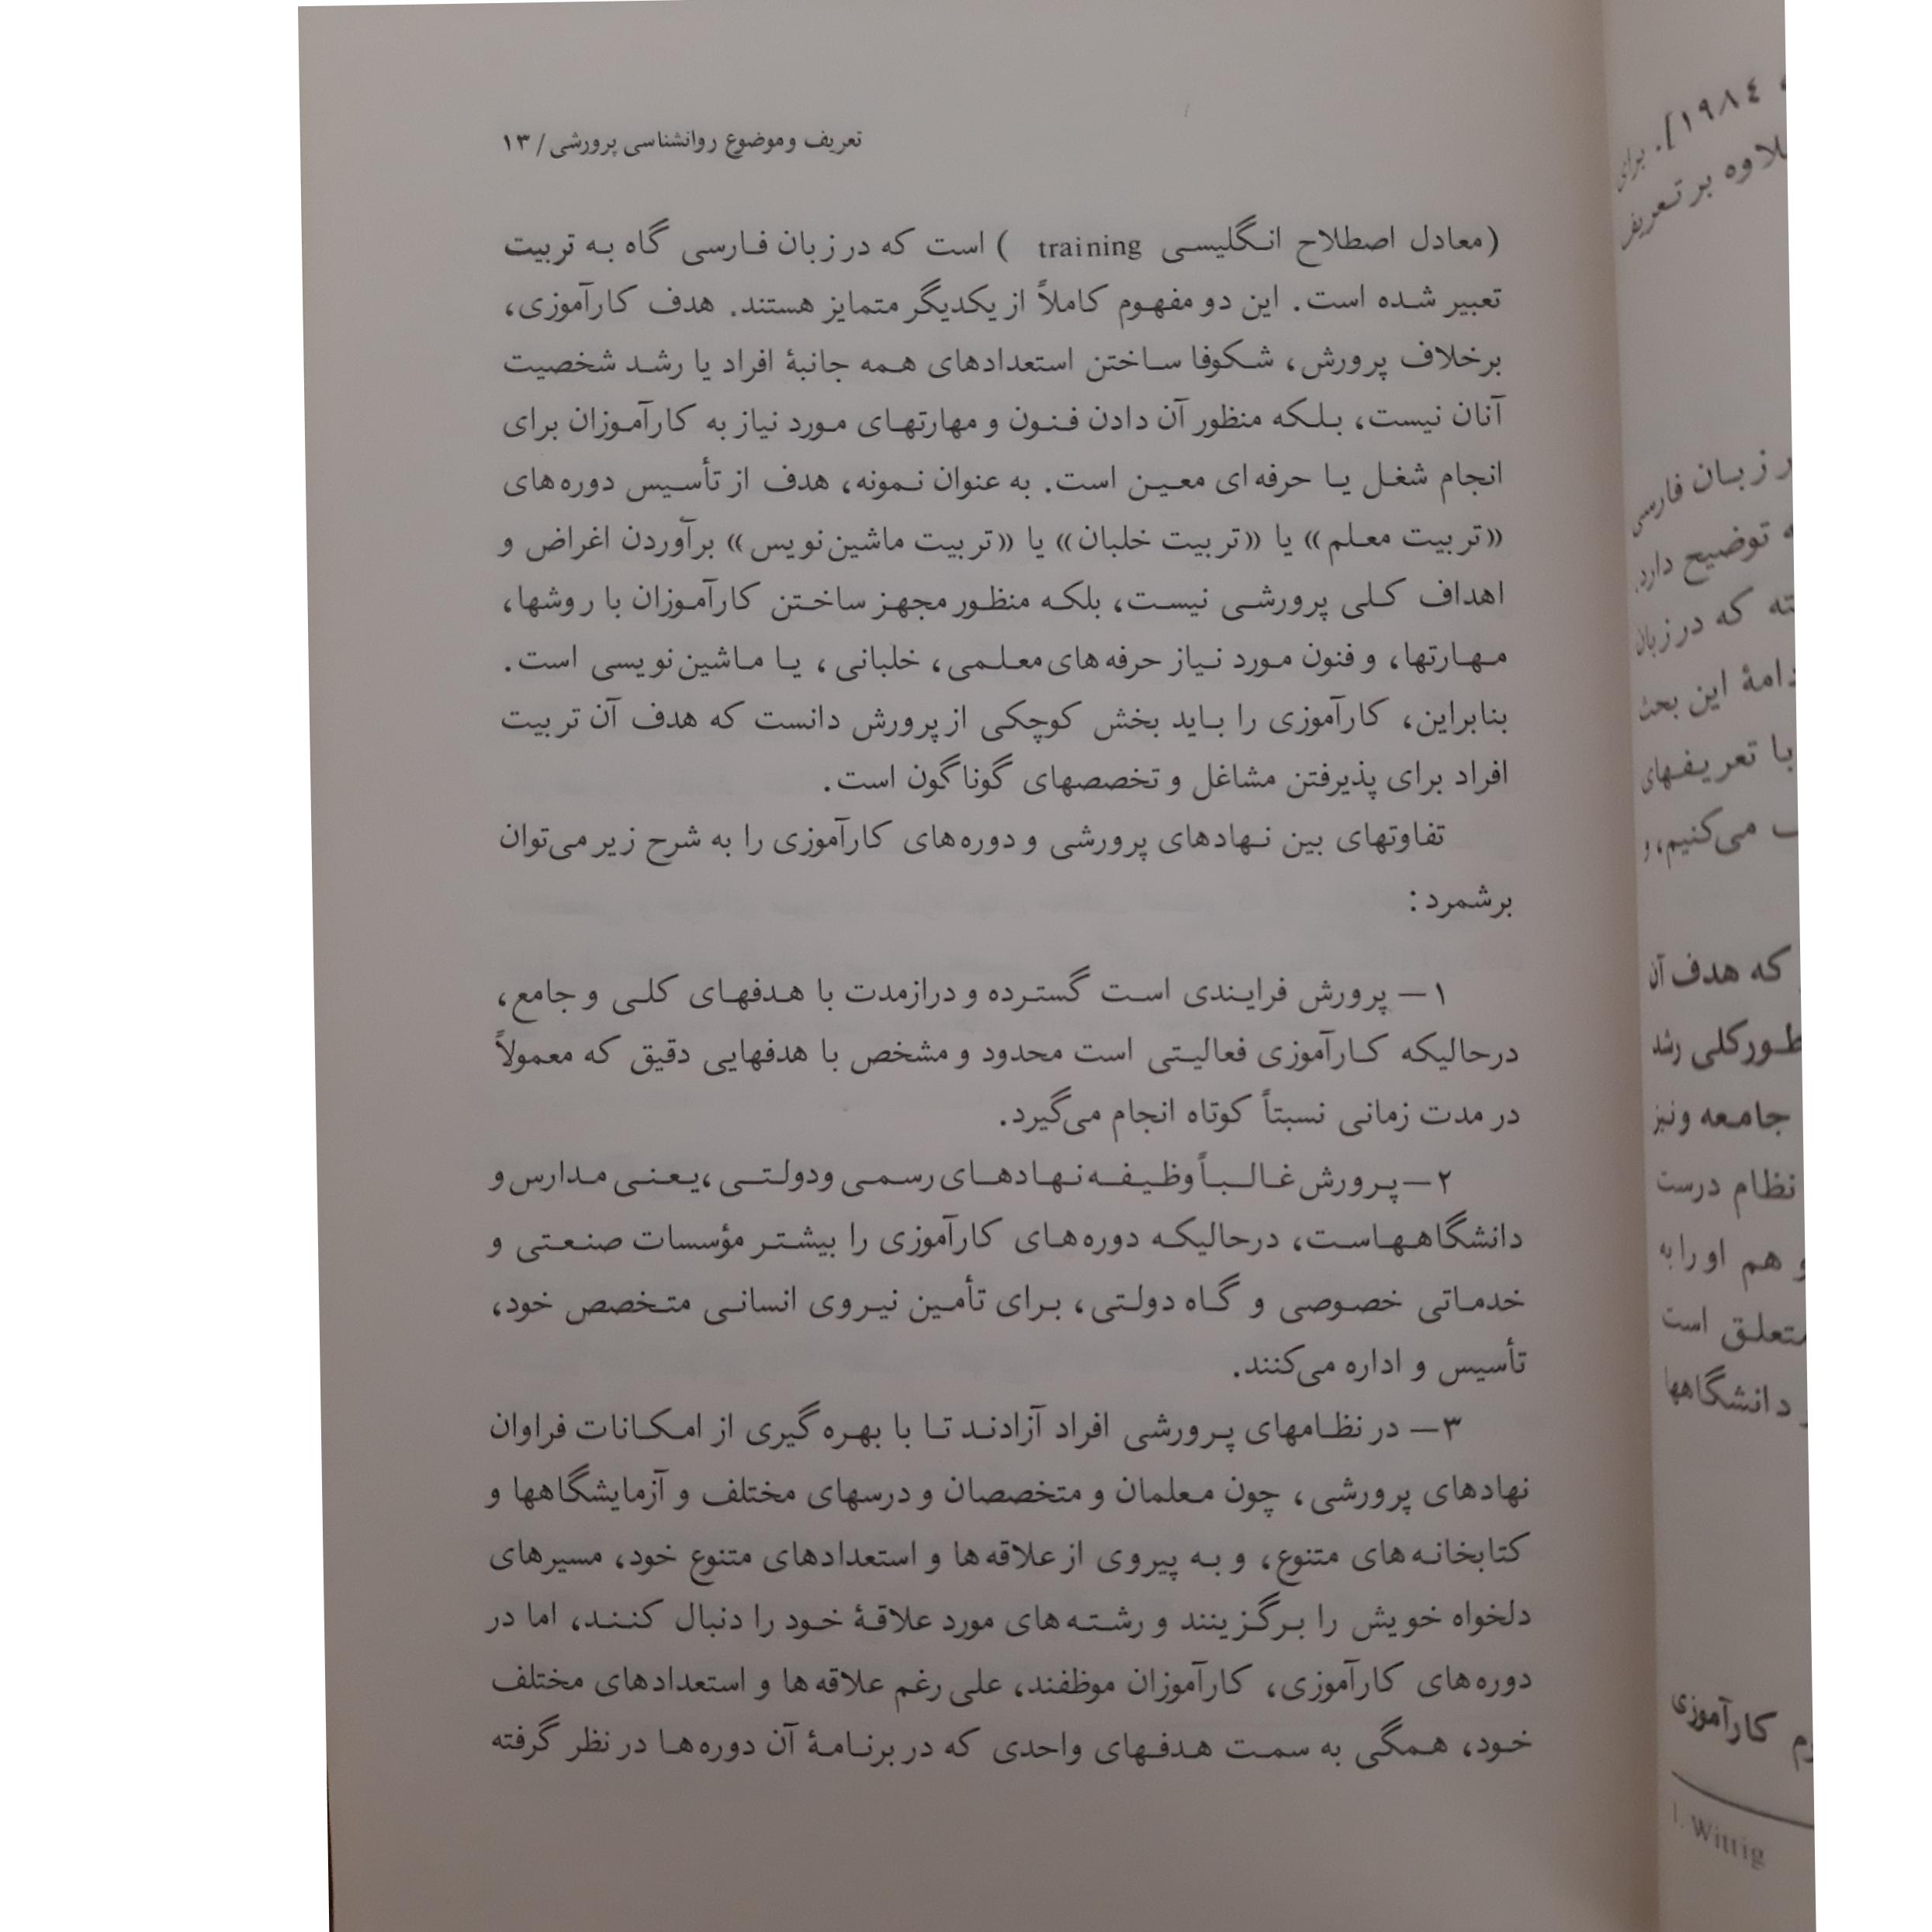 تعریف و موضوع روانشناسی پرورشی / ۱۳
(معادل اصطلاح انگلیسی training ) است که در زبان فارسی گاه به تربیت
تعبیر شده است. این دو مفهوم کاملاً از یکدیگر متمایز هستند. هدف کارآموزی،
برخلاف پرورش، شکوفا ساختن استعدادهای همه جانبهٔ افراد یا رشد شخصیت
آنان نیست، بلکه منظور آن دادن فنون و مهارتهای مورد نیاز به کارآموزان برای
انجام شغل یا حرفه‌ای معین است. به عنوان نمونه، هدف از تأسیس دوره‌های
«تربیت معلم» یا «تربیت خلبان» یا «تربیت ماشین‌نویس» برآوردن اغراض و
اهداف کلی پرورشی نیست، بلکه منظور مجهز ساختن کارآموزان با روشها،
مهارتها، و فنون مورد نیاز حرفه‌های معلمی، خلبانی، یا ماشین‌نویسی است.
بنابراین، کارآموزی را باید بخش کوچکی از پرورش دانست که هدف آن تربیت
افراد برای پذیرفتن مشاغل و تخصصهای گوناگون است.
تفاوتهای بین نهادهای پرورشی و دوره‌های کارآموزی را به شرح زیر می‌توان
برشمرد:
۱— پرورش فرایندی است گسترده و درازمدت با هدفهای کلی و جامع،
درحالیکه کارآموزی فعالیتی است محدود و مشخص با هدفهایی دقیق که معمولاً
در مدت زمانی نسبتاً کوتاه انجام می‌گیرد.
۲— پرورش غالباً وظیفه نهادهای رسمی ودولتی، یعنی مدارس و
دانشگاههاست، درحالیکه دوره‌های کارآموزی را بیشتر مؤسسات صنعتی و
خدماتی خصوصی و گاه دولتی، برای تأمین نیروی انسانی متخصص خود،
تأسیس و اداره می‌کنند.
۳— در نظامهای پرورشی افراد آزادند تا با بهره گیری از امکانات فراوان
نهادهای پرورشی، چون معلمان و متخصصان و درسهای مختلف و آزمایشگاهها و
کتابخانه‌های متنوع، و به پیروی از علاقه‌ها و استعدادهای متنوع خود، مسیرهای
دلخواه خویش را برگزینند و رشته‌های مورد علاقهٔ خود را دنبال کنند، اما در
دوره‌های کارآموزی، کارآموزان موظفند، علی رغم علاقه‌ها و استعدادهای مختلف
خود، همگی به سمت هدفهای واحدی که در برنامهٔ آن دوره‌ها در نظر گرفته
۱۹۸٤]. برای
بر تعریف
زبان فارسی
توضیح دارد.
که در زبان
این بحث
با تعریفهای
می‌کنیم، و
که هدف آن
رشد
جامعه و نیز
نظام درست
هم او را به
است
دانشگاهها
کارآموزی
1. Wittig